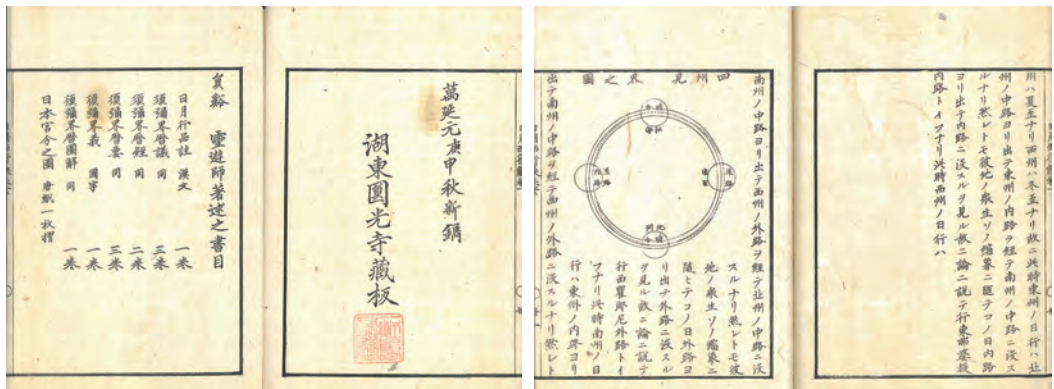 萬延元庚申秋新鐫
湖東圓光寺藏板
靈遊師著述之書目
日月行品註 漢文 一巻
須彌界暦議 同 三巻
須彌界暦經 同 二巻
須彌界暦要 同 三巻
須彌界義 國字 一巻
須彌界暦圖解 同 一巻
日本宮今之圖 唐紙一枚摺
州ハ夏至ナリ西州ハ冬至ナリ故ニ此時東州ノ日行ハ北
州ノ中路ヨリ出テ東州ノ内路ヲ經テ南州ノ中路ニ沒ス
ルナリ然レトモ彼地ノ衆生ソノ縮象ニ隨テコノ日内路
ヨリ出テ内路ニ沒スルヲ見ル故ニ論ニ説テ行東弗婆提
内路トイフナリ此時西州ノ日行ハ
南州ノ中路ヨリ出テ西州ノ外路ヲ經テ北州ノ中路ニ沒
四州見界之圖
スルナリ然レトモ彼
地ノ衆生ソノ縮象ニ
隨ヒテコノ日外路ヨ
リ出テ外路ニ沒スル
ヲ見ル故ニ論ニ説テ
行西瞿耶尼外路トイ
フナリ此時南州ノ日
行ハ東州ノ内路ヨリ
出テ南州ノ中路ヲ經テ西州ノ外路ニ沒スルナリ然レト